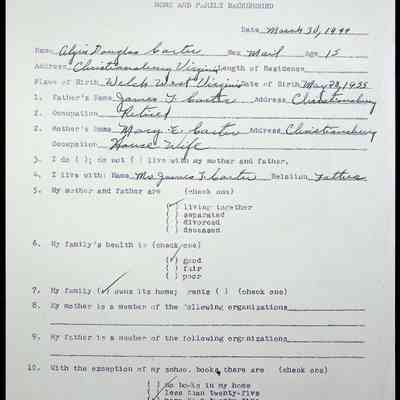 HOME AND FAMILY BACKGROUND
Date March 30, 1949
Name Alvin Douglas Carter Sex Male Age 15
Address Christiansburg Virginia Length of Residence
Place of Birth Welch West Virginia Date of Birth May 28, 1935
1. Father's Name James T. Carter Address Christiansburg
2. Occupation Retired
2. Mother's Name Mary E. Carter Address Christiansburg
Occupation House Wife
3. I do ( ); do not ( ) live with my mother and father.
4. I live with: Name Mr James T. Carter Relation Father
5. My mother and father are (check one)
(✓) living together
( ) separated
( ) divorced
( ) deceased
6. My family's health is (check one)
(✓) good
( ) fair
( ) poor
7. My family (✓) owns its home; rents ( ) (check one)
8. My mother is a member of the following organizations
9. My father is a member of the following organizations
10. With the exception of my school books there are (check one)
( ) no books in my home
( ) less than twenty-five